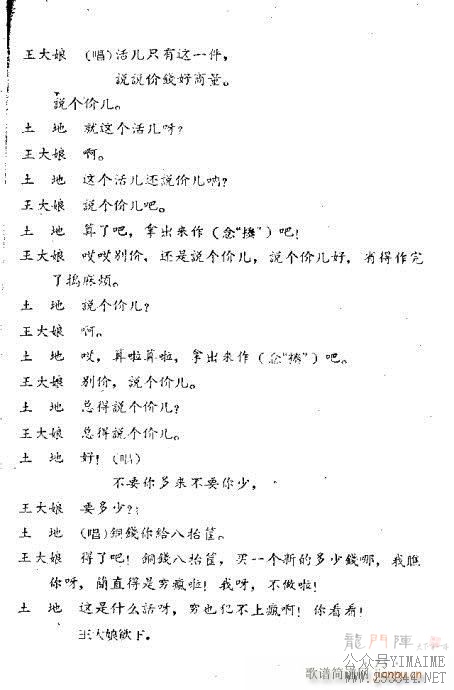 王大娘 (唱)活儿只有这一件，
說說价錢好商量。
說个价儿。
土 地 就这个活儿呀?
王大娘 啊。
土 地 这个活儿还說价儿吶?
王大娘 說个价儿吧。
土 地 算了吧，拿出来作(念“揍”)吧!
王大娘 哎哎别价，还是說个价儿，說个价儿好，省得作完
了搗麻烦。
土 地 說个价儿?
王大娘 啊。
土 地 哎，算啦算啦，拿出来作(念“揍”)吧。
王大娘 别价，說个价儿。
土 地 总得說个价儿?
王大娘 总得說个价儿。
土 地 好! (唱)
不要你多来不要你少，
王大娘 要多少?
土 地 (唱)銅錢你給八抬筐。
王大娘 得了吧! 銅錢八抬筐，买一个新的多少錢哪，我瞧
你呀，簡直得是穷瘋啦! 我呀，不做啦!
土 地 这是什么話呀，穷也犯不上瘋啊! 你看看!
王大娘欲下。
龍門陣
公众号YIMAIME
歌谱简谱网